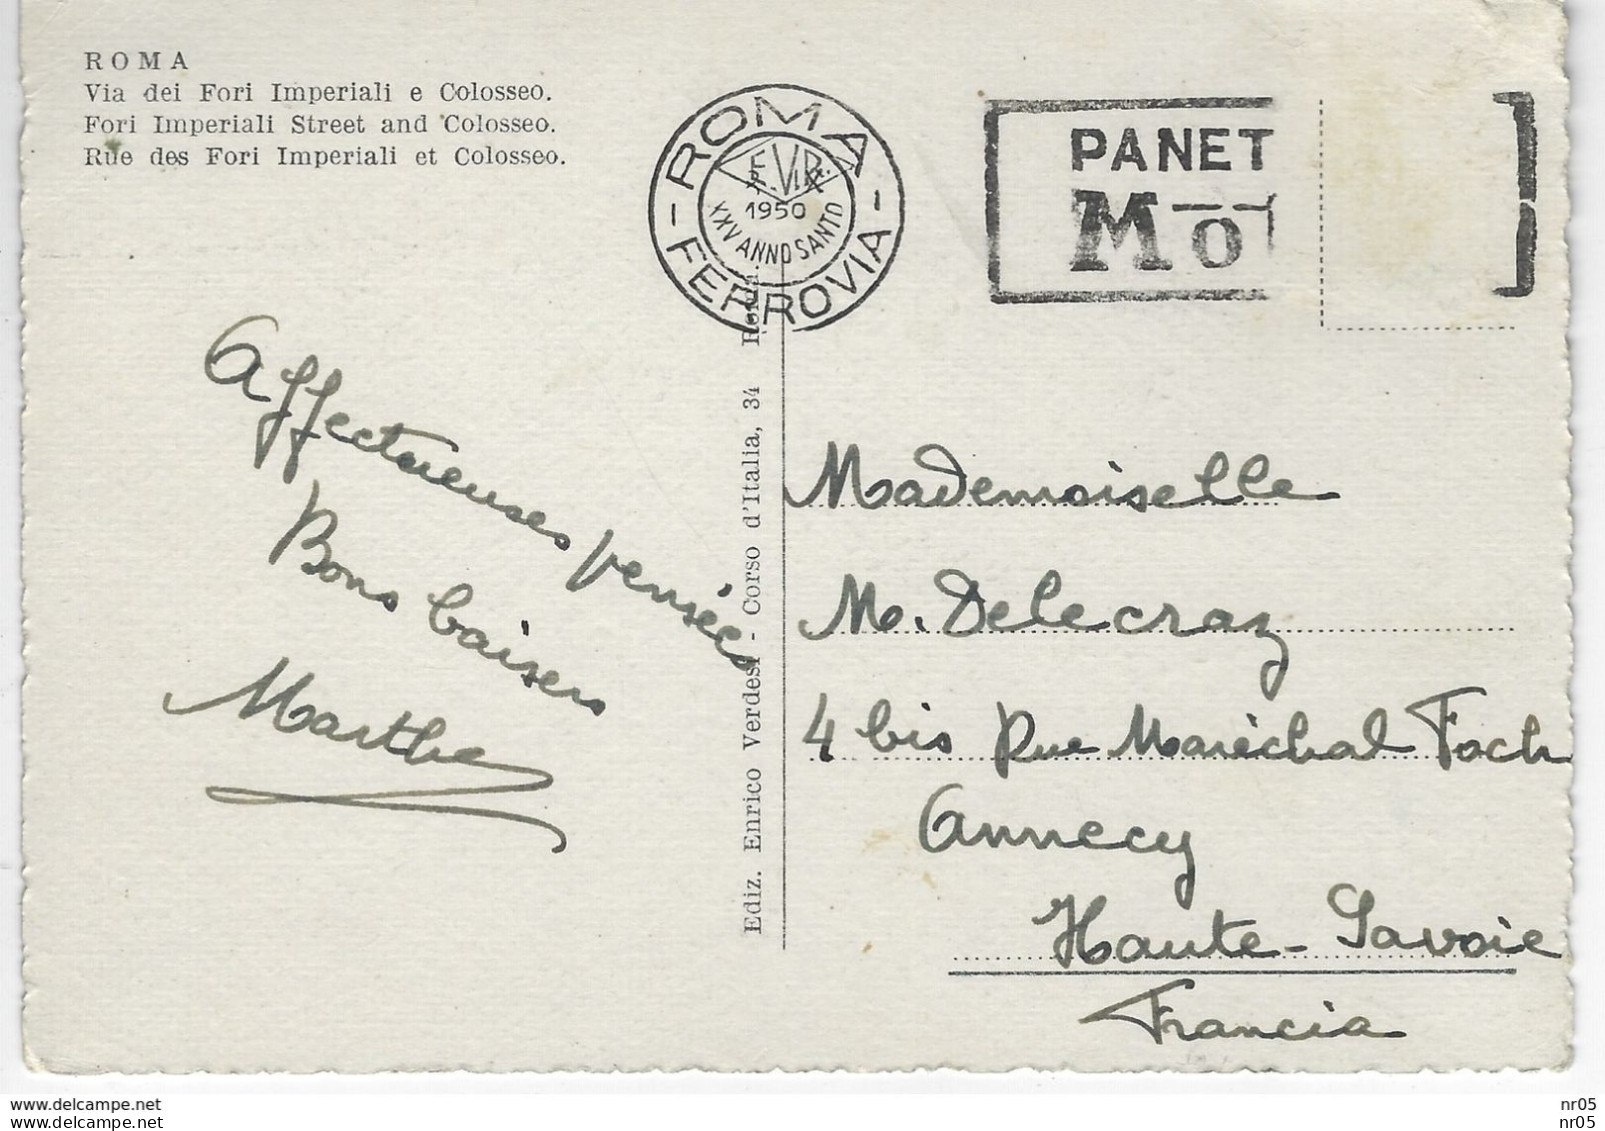 ROMA
Via dei Fori Imperiali e Colosseo.
Fori Imperiali Street and Colosseo.
Rue des Fori Imperiali et Colosseo.
ROMA
1950
XXV ANNO SANTO
FERROVIA
PANET
Mo
Affectueuses pensées
Bons baisers
Marthe
Ediz. Enrico Verdesi - Corso d'Italia, 34 Roma.
Mademoiselle
M. Delecraz
4 bis Rue Maréchal Foch
Annecy
Haute-Savoie
Francia
delcampe.net
delcampe.net
nr05
nr05